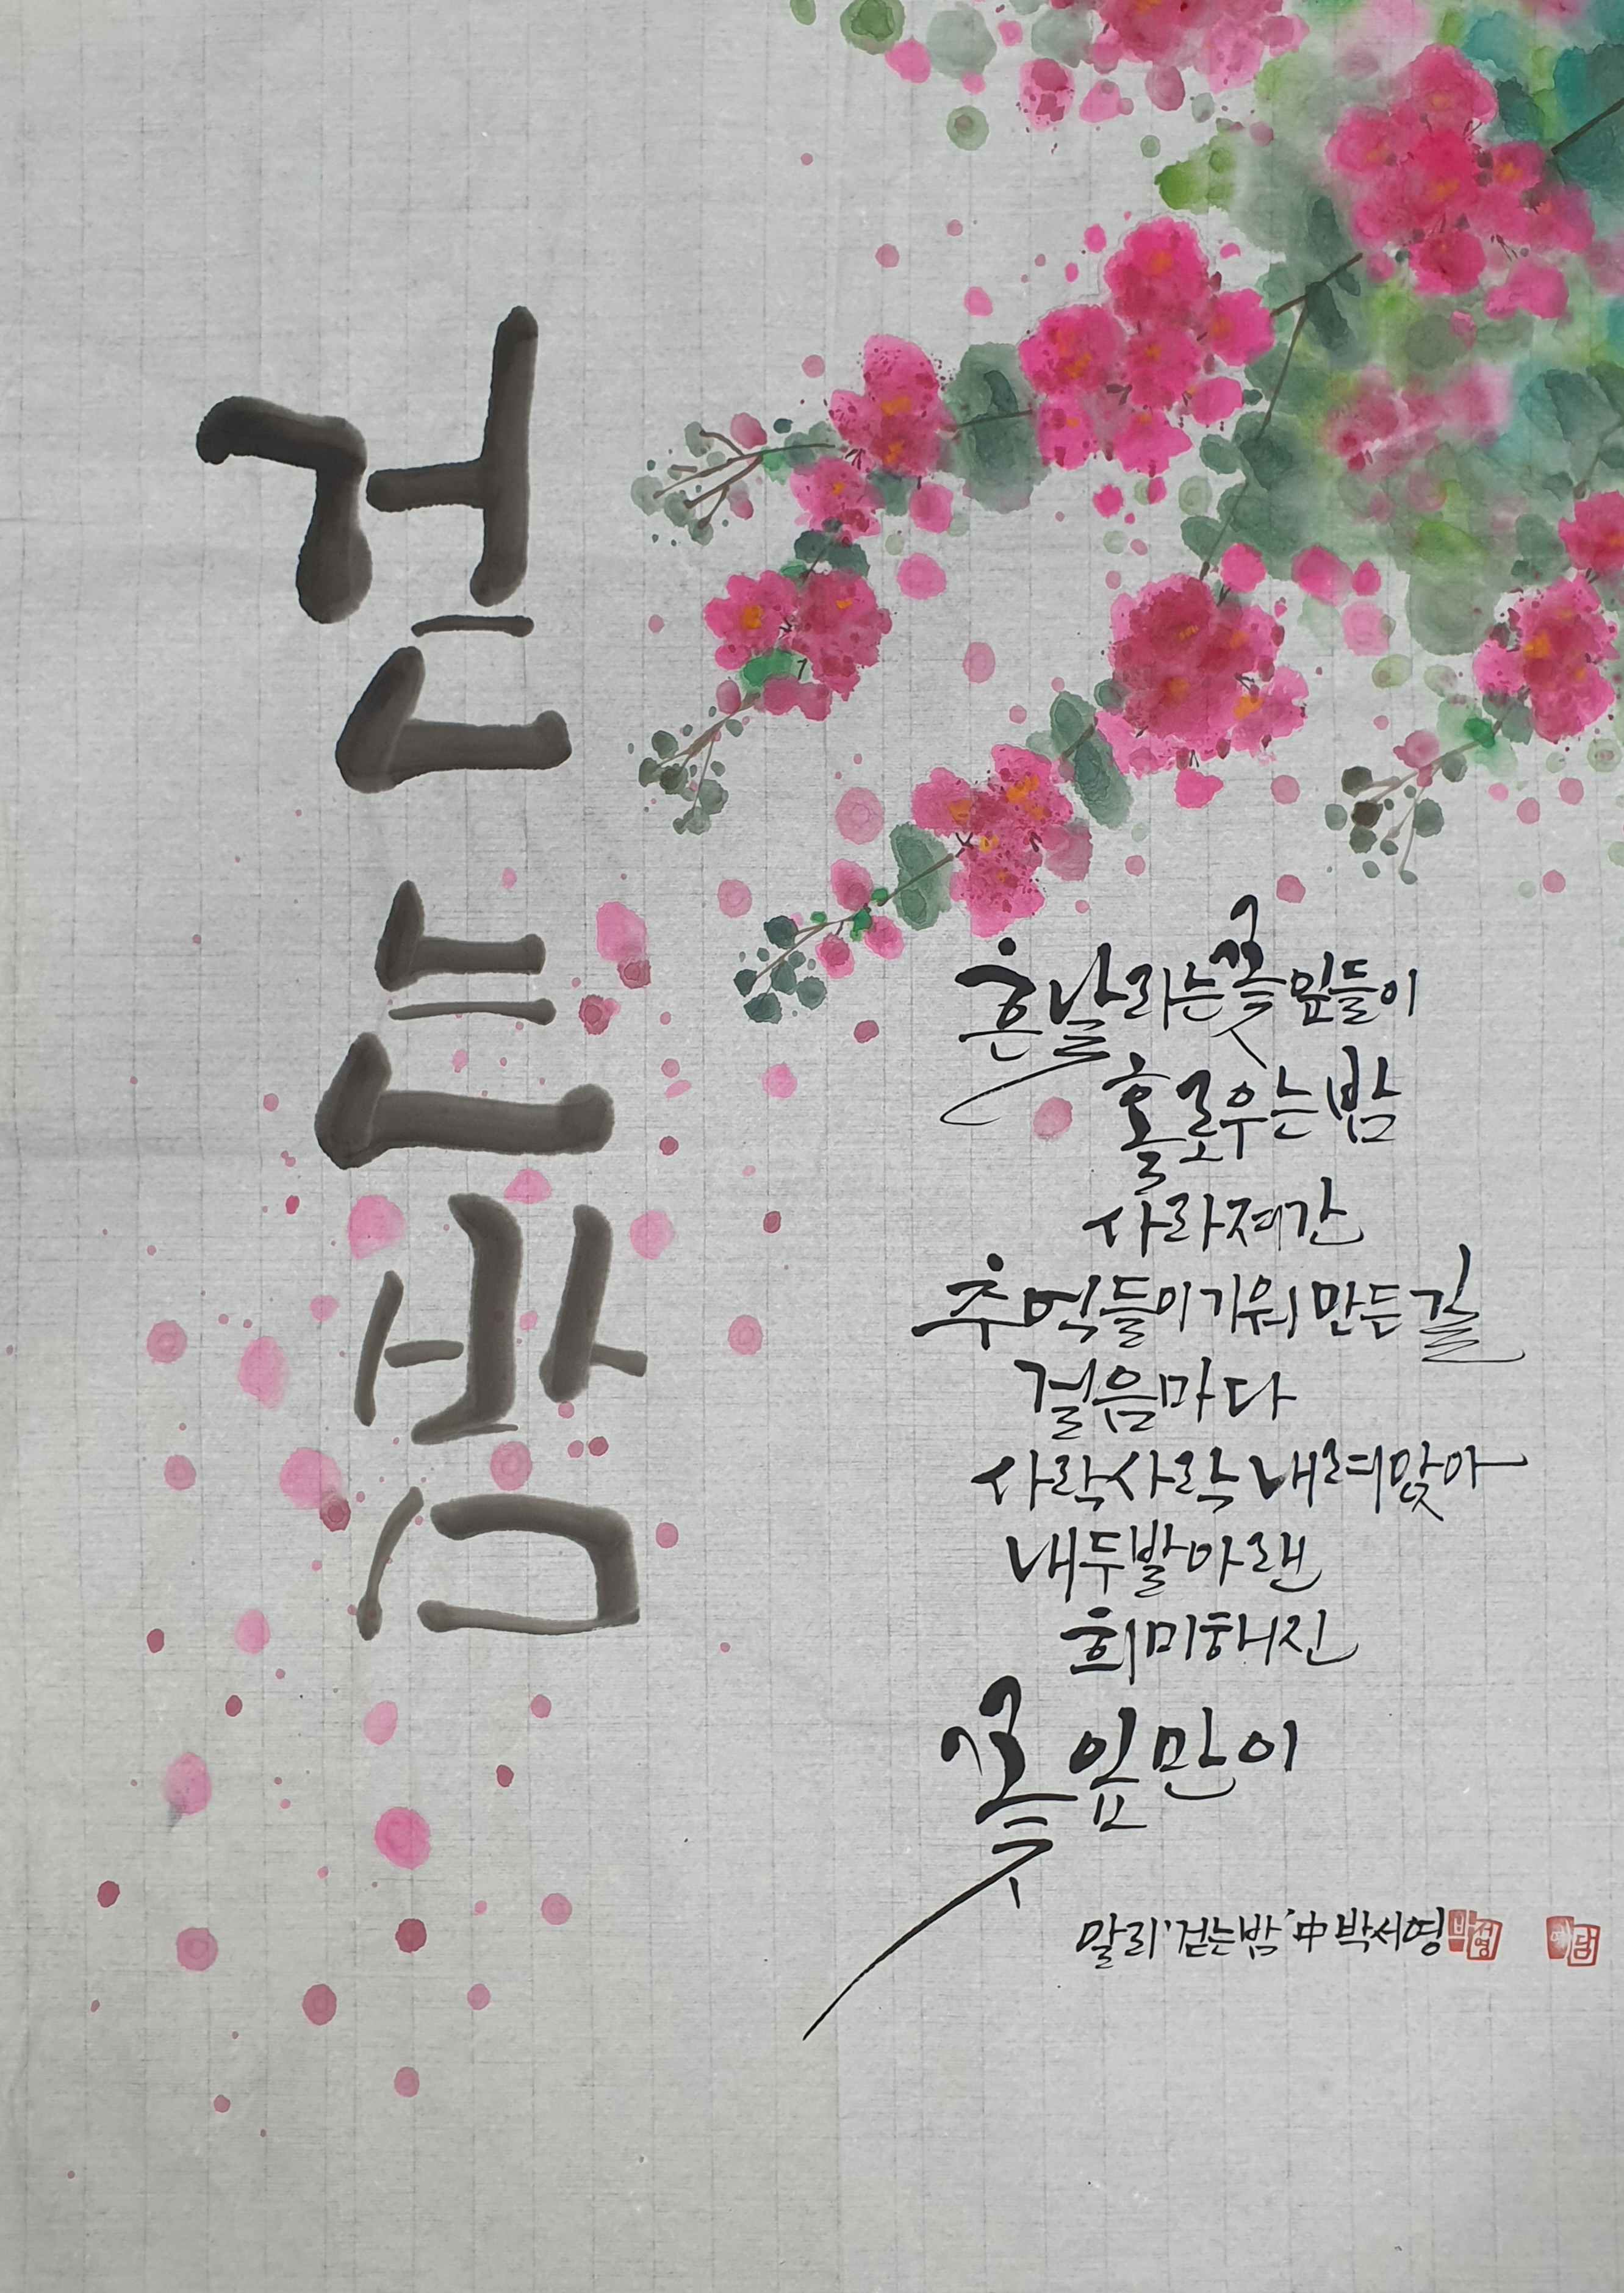 걷는밤
흩날리는 꽃잎들이
홀로 우는 밤
사라져간
추억들이 가워 만든 길
걸음마다
사락사락 내려앉아
내 두 발 아랜
희미해진
꽃잎만이
말리 '걷는밤' 中 박서영
박서영
예담